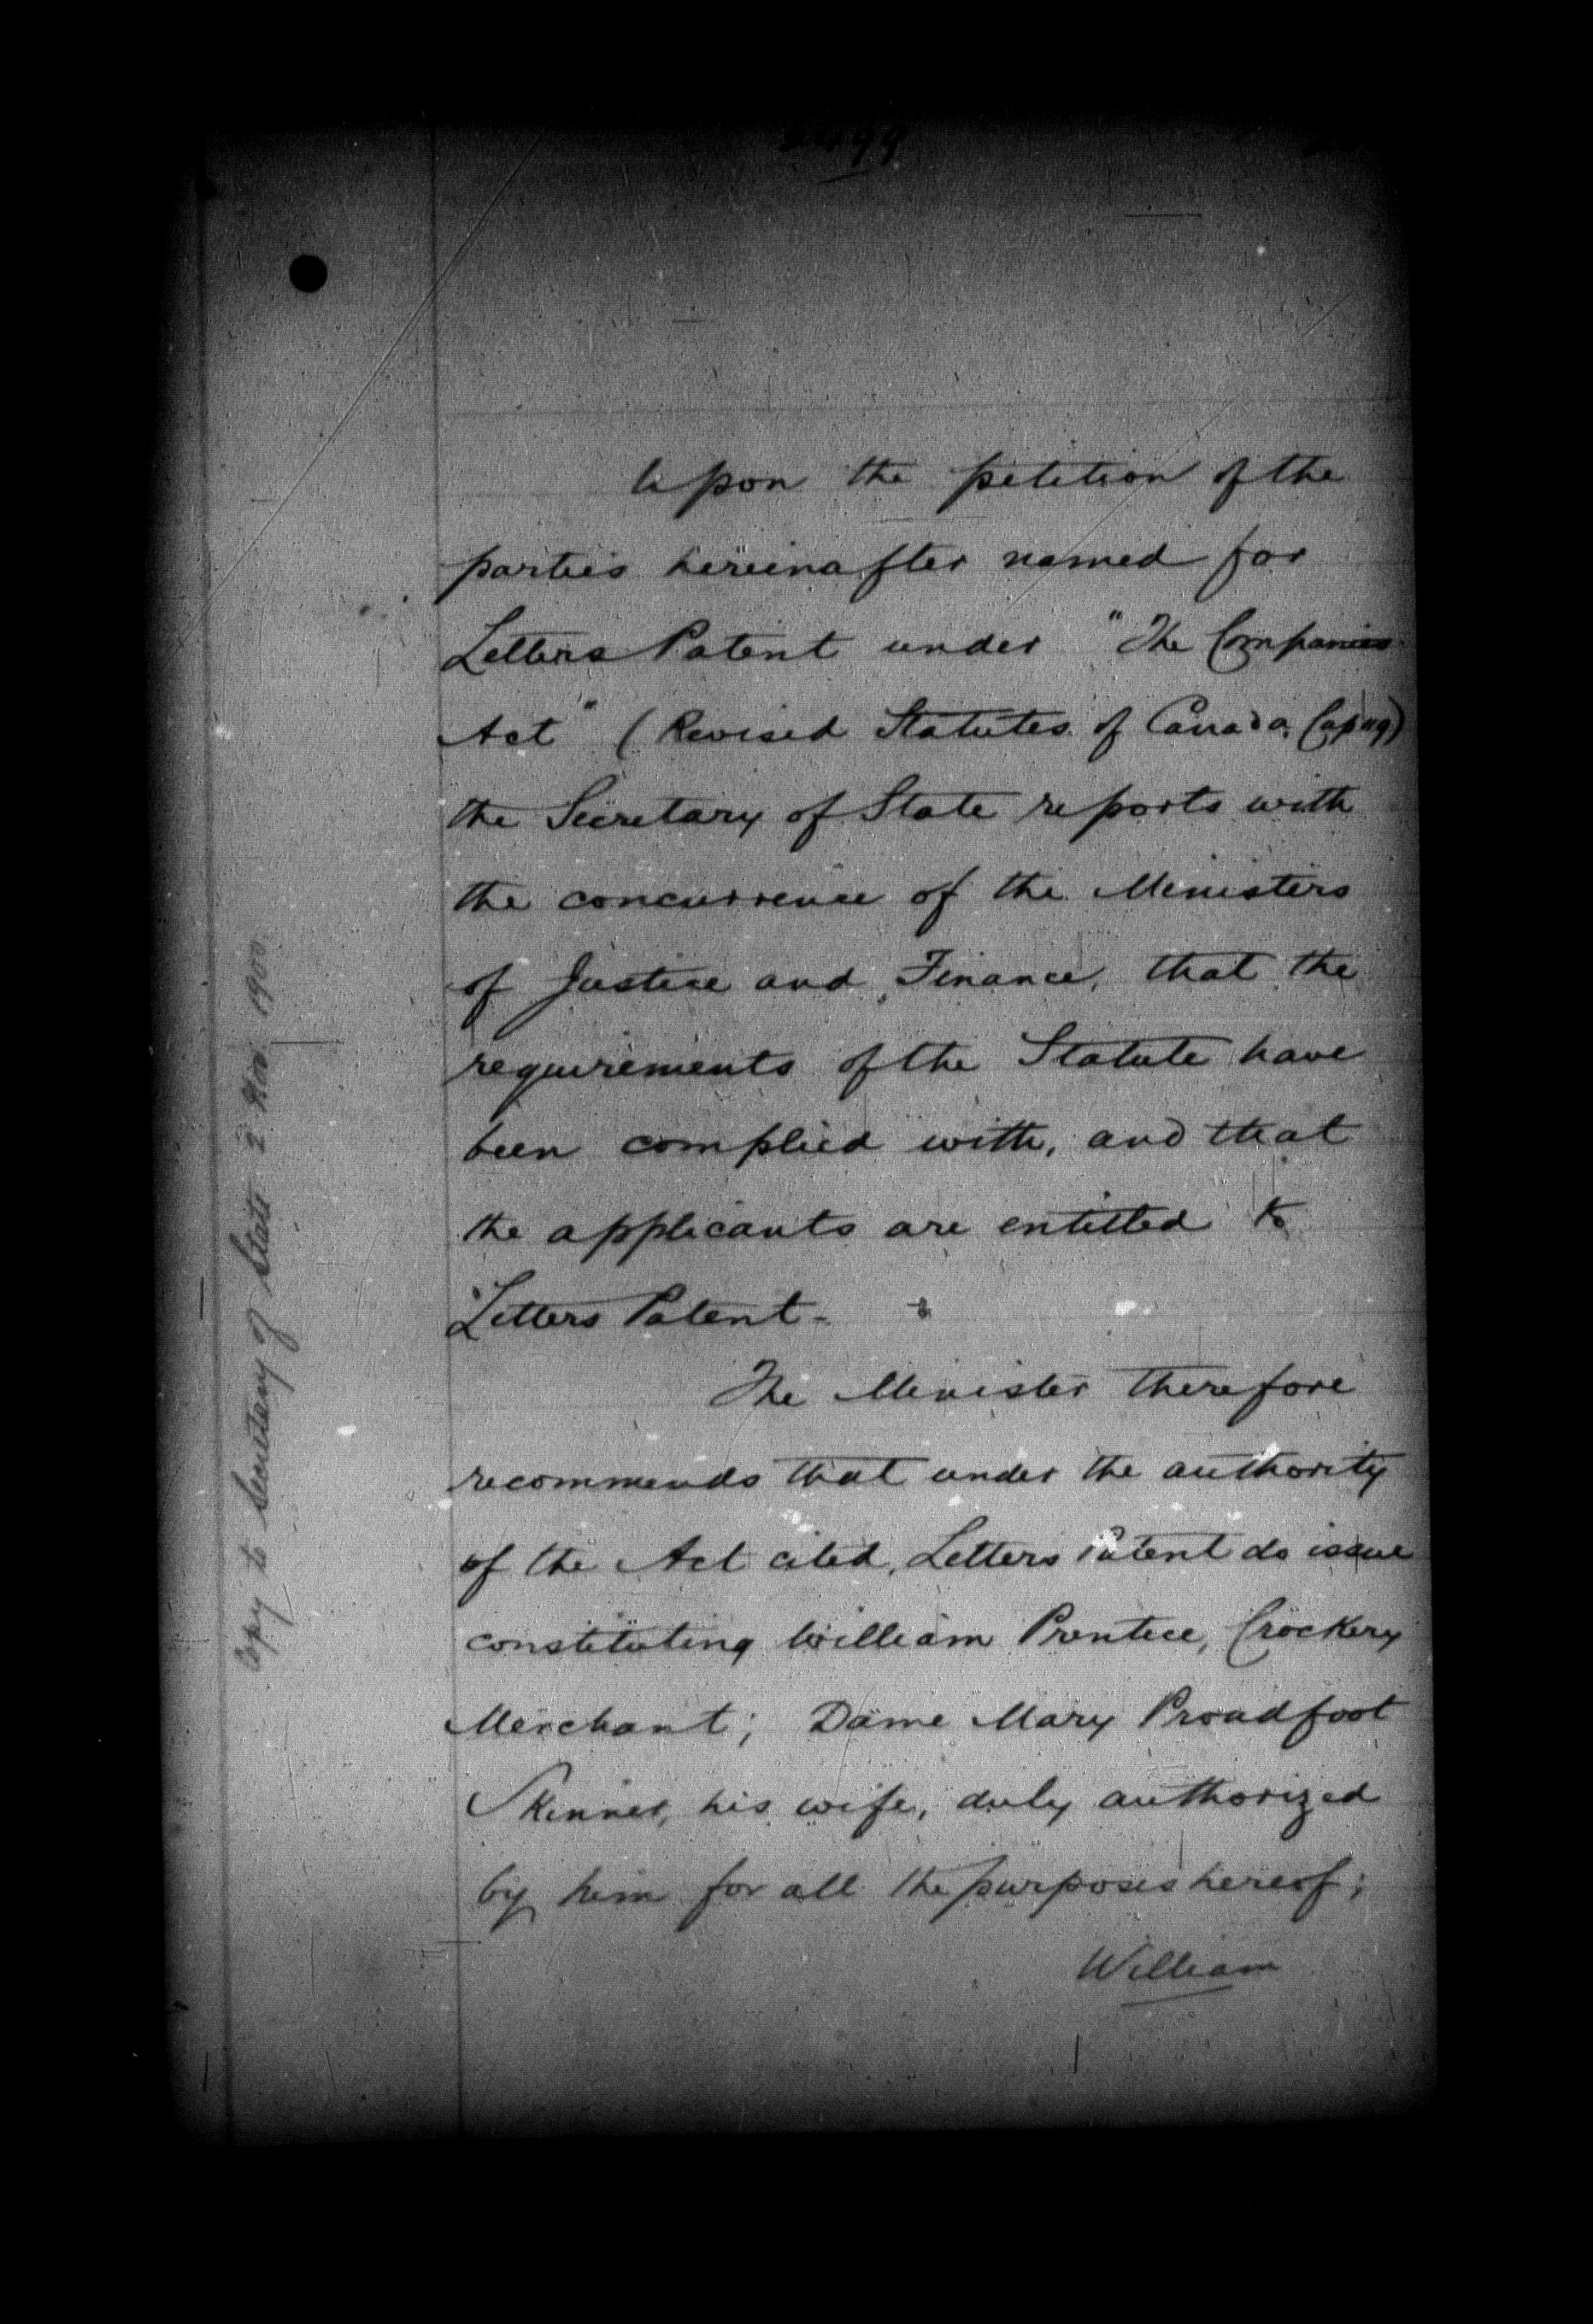 2499
Upon the petition of the
parties hereinafter named for
Letters Patent under "The Companies
Act" (Revised Statutes of Canada, Cap 119)
the Secretary of State reports with
the concurrence of the Ministers
of Justice and Finance, that the
requirements of the Statute have
been complied with, and that
the applicants are entitled to
Letters Patent -
The Minister therefore
recommends that under the authority
of the Act cited, Letters Patent do issue
constituting William Prentice, Crockery
Merchant; Dame Mary Proudfoot
Skinner, his wife, duly authorized
by him for all the purposes hereof;
William
Copy to Secretary of State 2 Nov. 1900.